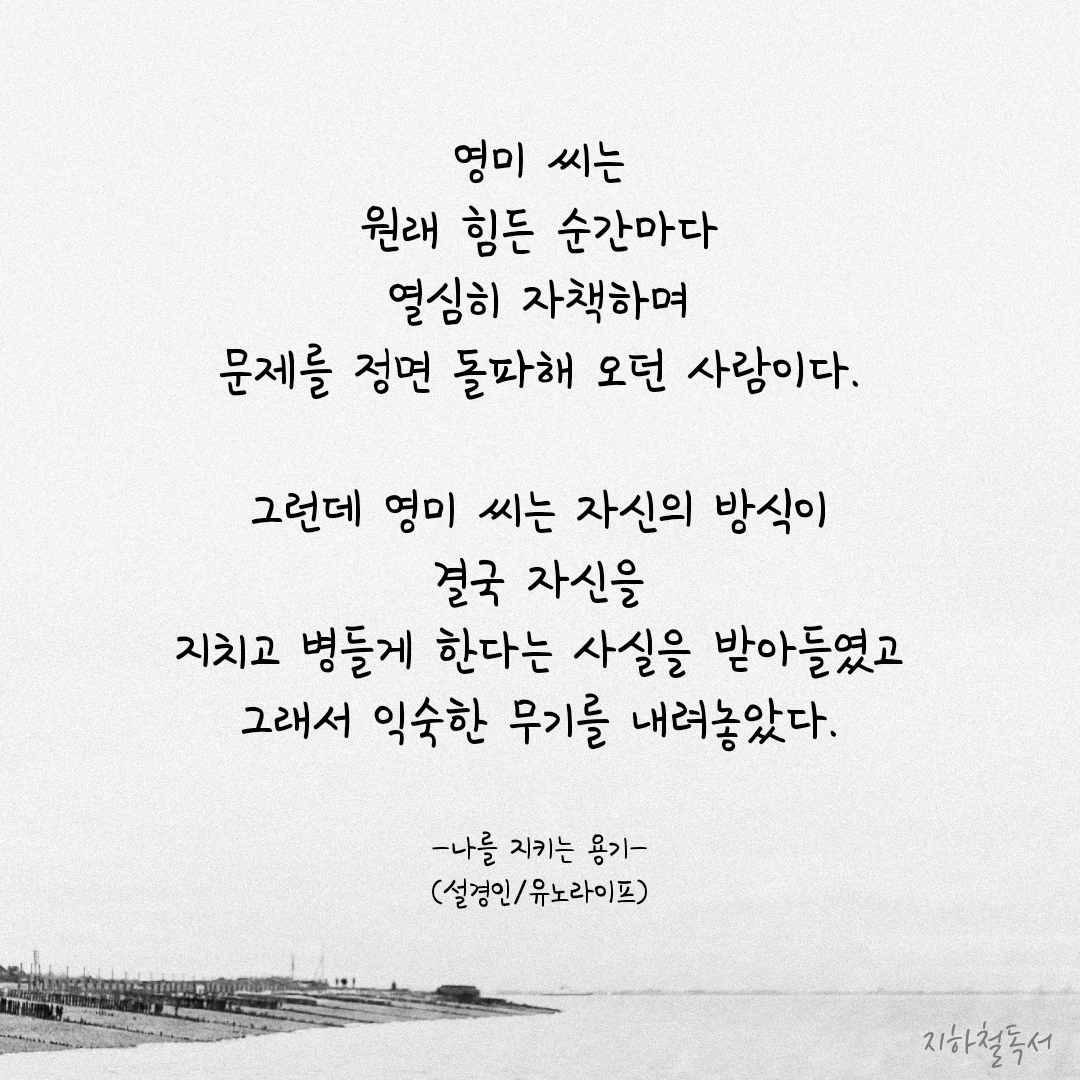 영미 씨는
원래 힘든 순간마다
열심히 자책하며
문제를 정면 돌파해 오던 사람이다.
그런데 영미 씨는 자신의 방식이
결국 자신을
지치고 병들게 한다는 사실을 받아들였고
그래서 익숙한 무기를 내려놓았다.
-나를 지키는 용기-
(설경인/유노라이프)
지하철독서